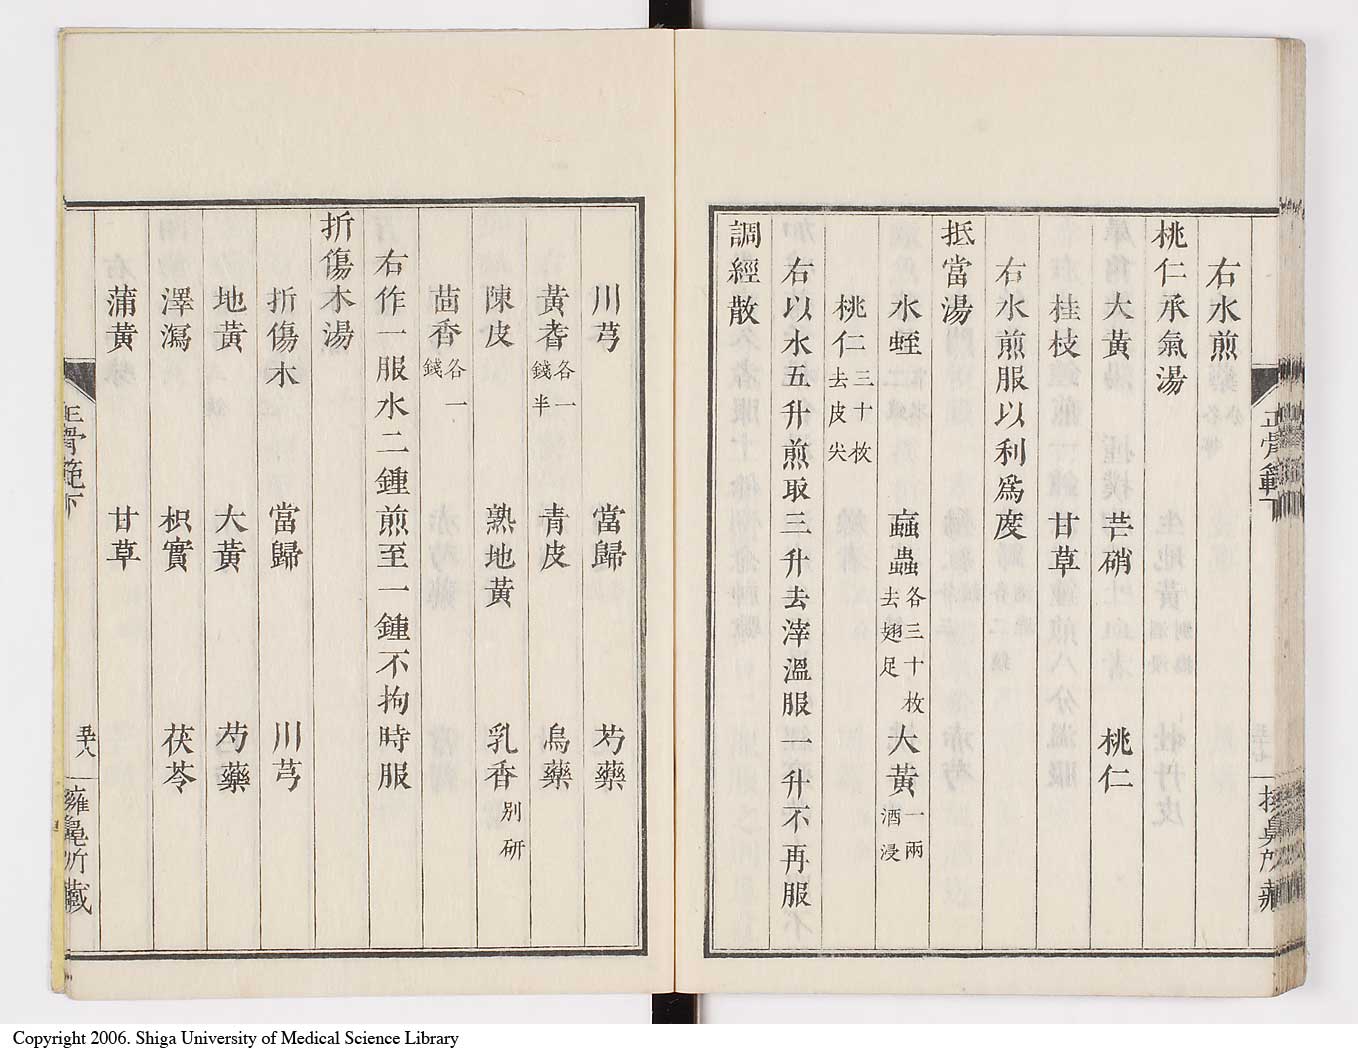 右水煎
桃仁承氣湯
大黃 芒硝 桃仁
桂枝 甘草
右水煎服以利爲度
抵當湯
水蛭 䖟蟲各三十枚去翅足 大黃一兩酒浸
桃仁三十枚去皮尖
右以水五升煎取三升去滓溫服一升不再服
調經散
川芎 當歸 芍藥
黃耆各一錢半 青皮 烏藥
陳皮 熟地黃 乳香別研
茴香各一錢
右作一服水二鍾煎至一鍾不拘時服
折傷木湯
折傷木 當歸 川芎
地黃 大黃 芍藥
澤瀉 枳實 茯苓
蒲黃 甘草
正骨範下
五十八
Copyright 2006. Shiga University of Medical Science Library